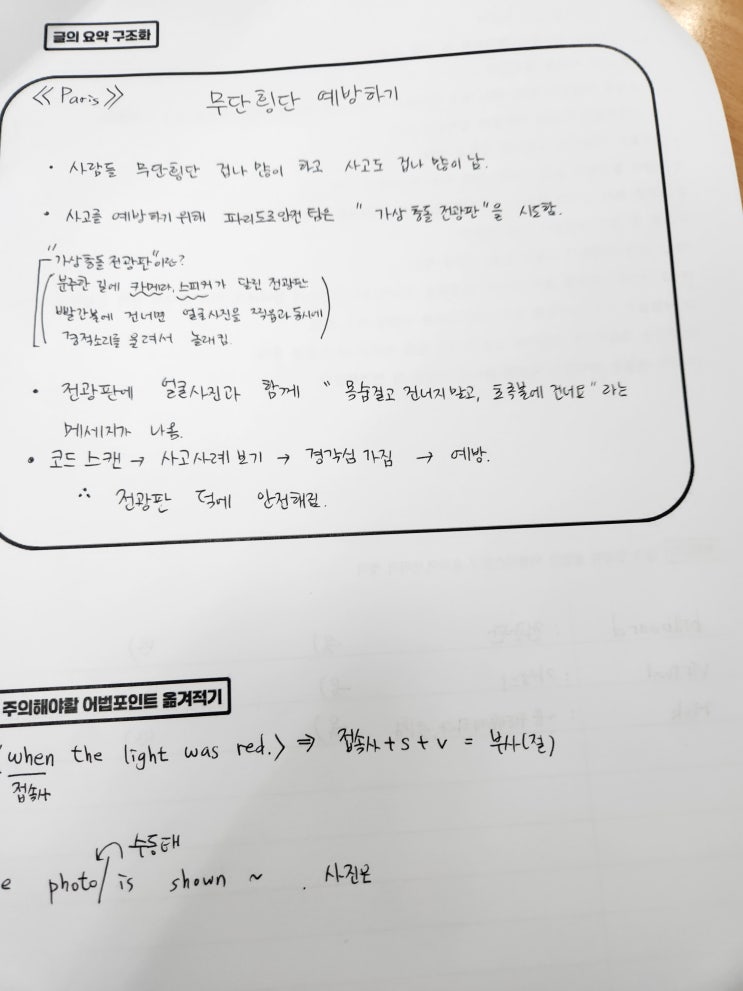 글의 요약 구조화
《Paris》 무단횡단 예방하기
• 사람들 무단횡단 겁나 많이 하고 사고도 겁나 많이 남.
• 사고를 예방하기 위해 파리도로안전 팀은 " 가상 충돌 전광판"을 시도함.
"가상충돌 전광판"이란?
분주한 길에 카메라, 스피커가 달린 전광판
빨간불에 건너면 얼굴사진을 찍음과 동시에
경적소리를 울려서 놀래킴.
• 전광판에 얼굴사진과 함께 " 목숨걸고 건너지말고, 초록불에 건너요" 라는
메세지가 나옴.
• 코드 스캔 → 사고사례 보기 → 경각심 가짐 → 예방.
∴ 전광판 덕에 안전해짐.
주의해야할 어법포인트 옮겨적기
when the light was red.〉 ⇒ 접속사+s+v = 부사(절)
접속사
수동태
e photo/is shown ~ . 사진은